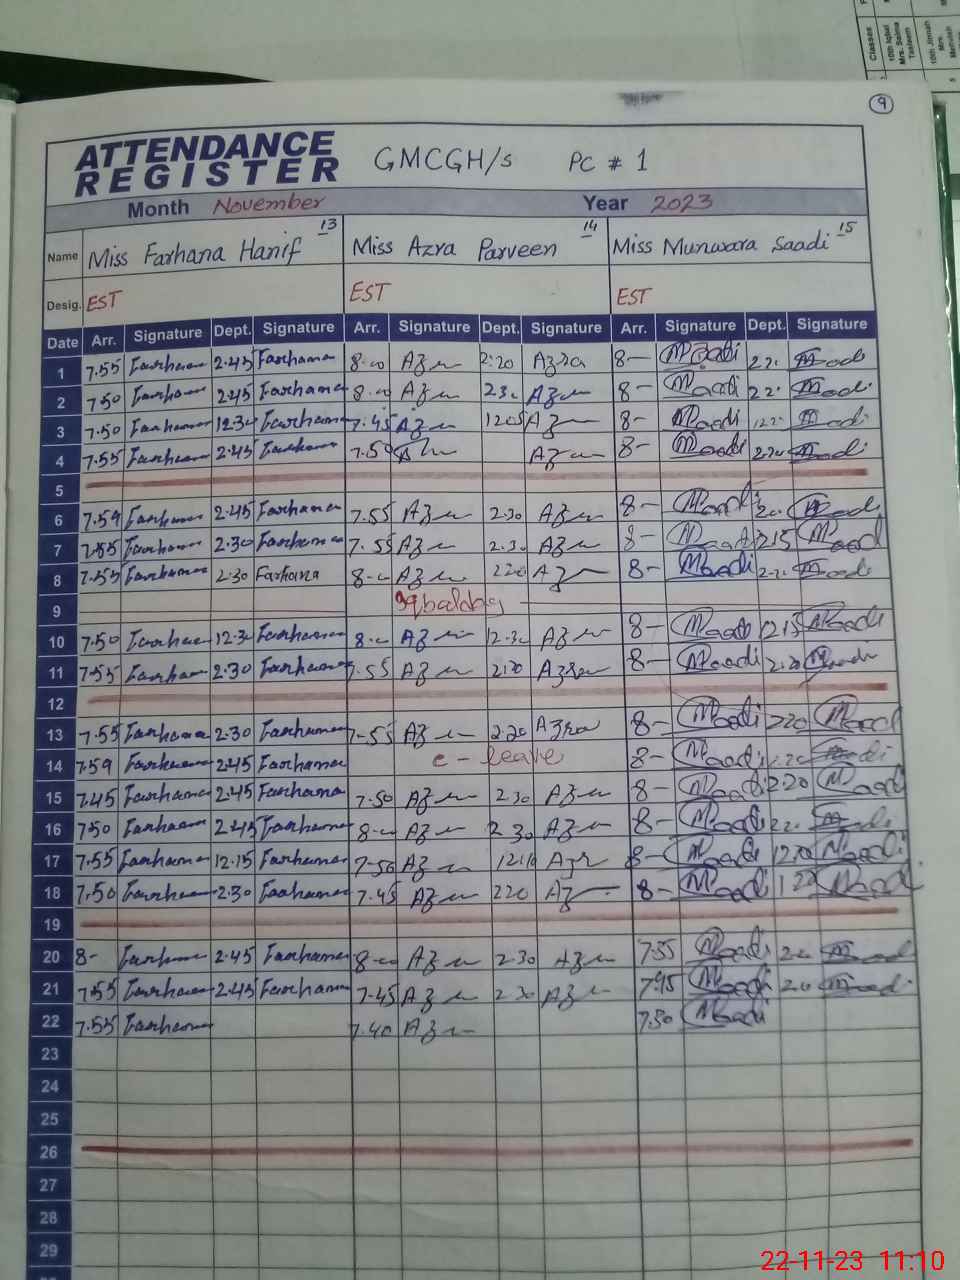 9
ATTENDANCE REGISTER GMCGH/s PC # 1
Month November Year 2023
Name Miss Farhana Hanif 13 Miss Azra Parveen 14 Miss Munwara Saadi 15
Desig. EST EST EST
Date Arr. Signature Dept. Signature Arr. Signature Dept. Signature Arr. Signature Dept. Signature
1 7.55 Farhana 2.45 Farhana 8.00 Azra 2.20 Azra 8- MSaadi
2 7.50 Farhana 2.45 Farhana 8.00 Azra 8- Maadi
3 7.50 Farhana 12.30 Farhana 7.45 Azra 1205 Azra 8- Maadi
4 7.55 Farhana 2.45 Farhana 7.50 Azra 8- Maadi
5
6 7.59 Farhana 2.45 Farhana 7.55 Azra 2.30 Azra 8- Maadi
7 7.55 Farhana 2.30 Farhana 7.55 Azra 2.30 Azra 8- Maadi 215 Maadi
8 7.55 Farhana 2.30 Farhana 8- Azra 220 Az 8- Maadi
9 Iqbalday
10 7.50 Farhana 12.30 Farhana 8- Azra 12.30 Azra 8- Maadi 1215 Maadi
11 7.55 Farhana 2.30 Farhana 7.55 Azra 2.20 Azra 8- Maadi 2.20 Maadi
12
13 7.55 Farhana 2.30 Farhana 7.55 Azra 2.20 Azra 8- Maadi 220 Maadi
14 7.59 Farhana 2.45 Farhana c-leave 8- Maadi
15 7.45 Farhana 2.45 Farhana 7.50 Azra 2.30 Azra 8- Maadi 2.20 Maadi
16 7.50 Farhana 2.45 Farhana 8.00 Azra 2.30 Azra 8- Maadi
17 7.55 Farhana 12.15 Farhana 7.50 Azra 12.10 Azr 8- Maadi 1210 Maadi
18 7.50 Farhana 2.30 Farhana 7.45 Azra 220 Az 8- Maadi Maadi
19
20 8- Farhana 2.45 Farhana 8.00 Azra 2.30 Azra 7.55 Maadi
21 7.55 Farhana 2.45 Farhana 7.45 Azra 2.30 Azra 7.45 Maadi
22 7.55 Farhana 7.40 Azra 7.50 Maadi
23
24
25
26
27
28
29
Classes
10th Iqbal
Mrs. Salma
Tasleem
10th Jinnah
Mrs.
22-11-23 11:10